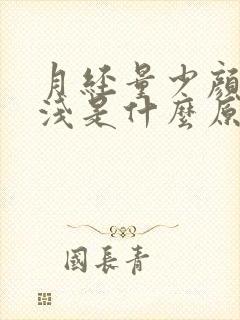 月经量少顔
淺是什麼原
國長青